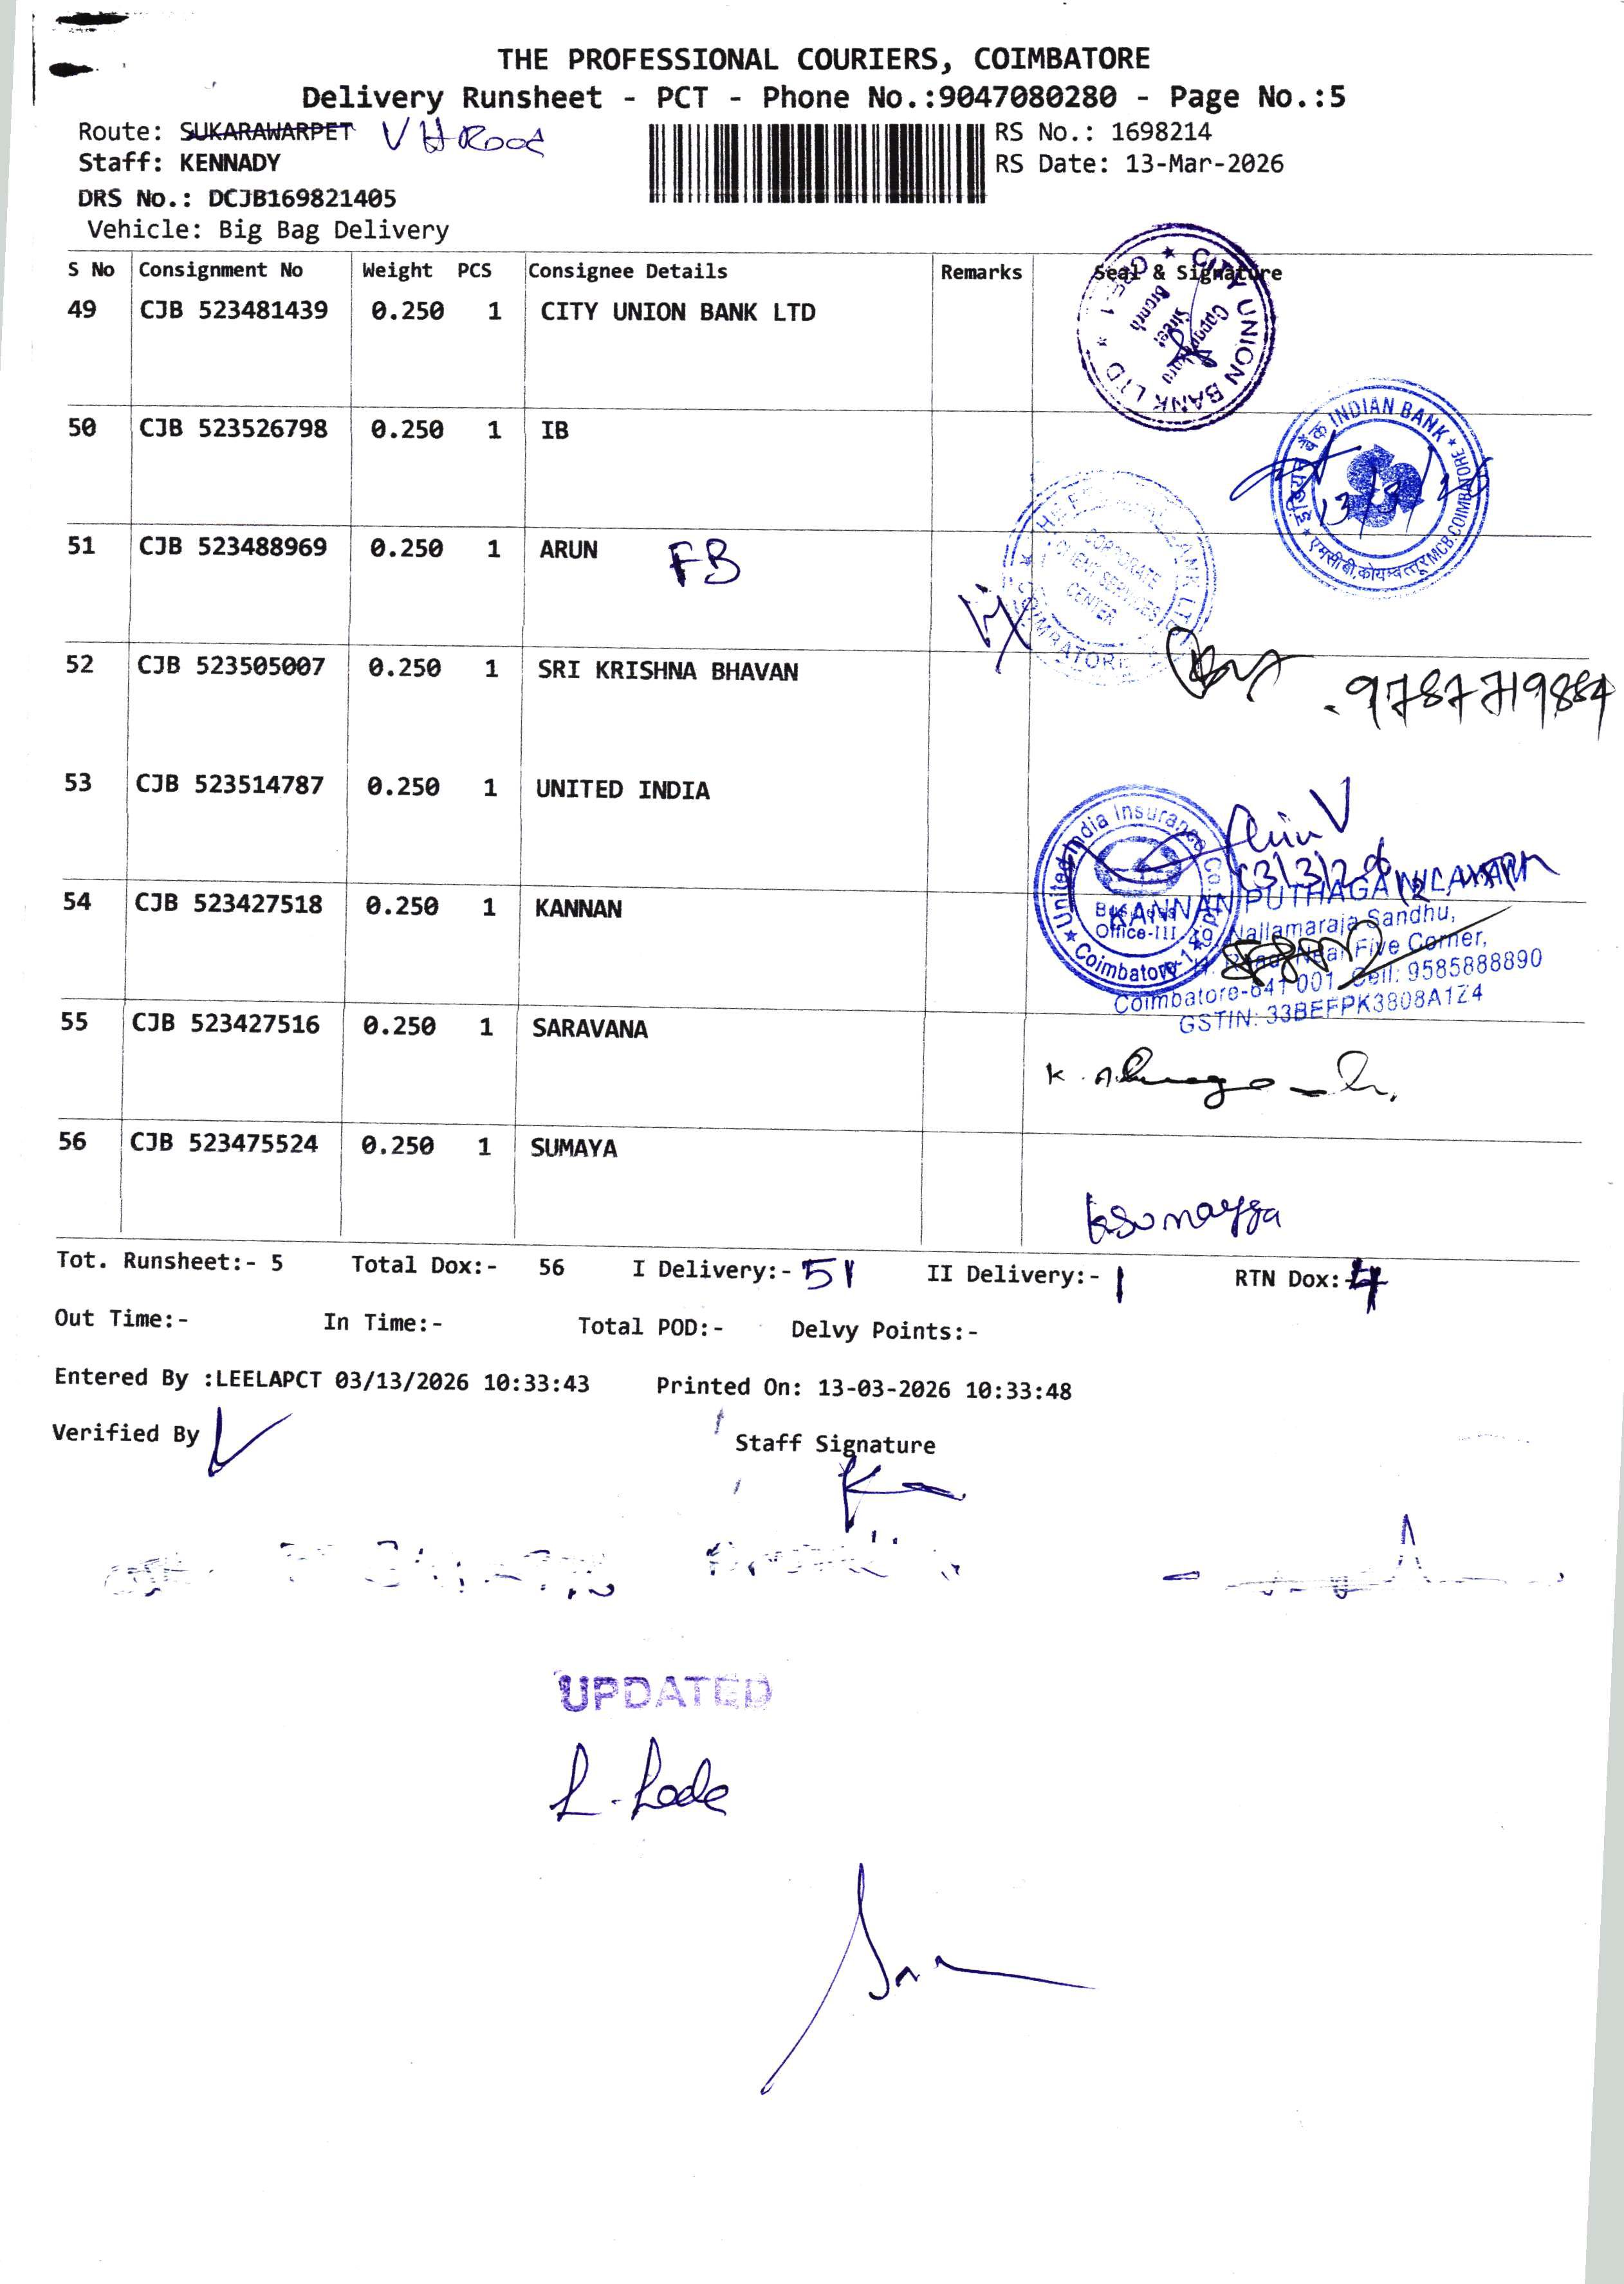 THE PROFESSIONAL COURIERS, COIMBATORE
Delivery Runsheet - PCT - Phone No.:9047080280 - Page No.:5
Route: SUKARAWARPET V H Road
RS No.: 1698214
Staff: KENNADY
RS Date: 13-Mar-2026
DRS No.: DCJB169821405
Vehicle: Big Bag Delivery
S No Consignment No Weight PCS Consignee Details Remarks Seal & Signature
49 CJB 523481439 0.250 1 CITY UNION BANK LTD
CITY UNION BANK LTD
Street
Branch
50 CJB 523526798 0.250 1 IB
इंडियन बैंक INDIAN BANK
एमसीबी,कोयम्बत्तूर MCB.COIMBATORE
13/3/26
51 CJB 523488969 0.250 1 ARUN FB
CORPORATE
CLIENT SERVICES
CENTER
COIMBATORE
52 CJB 523505007 0.250 1 SRI KRISHNA BHAVAN
9787719884
53 CJB 523514787 0.250 1 UNITED INDIA
United India Insurance Co.
Office-III
Coimbatore-1
13/3/26
54 CJB 523427518 0.250 1 KANNAN
KANNAN PUTHAGA NILAYAM
49, Nallamaraja Sandhu,
Near Five Corner,
Coimbatore-641 001. Cell: 9585888890
GSTIN: 33BEFPK3808A1Z4
55 CJB 523427516 0.250 1 SARAVANA
56 CJB 523475524 0.250 1 SUMAYA
Tot. Runsheet:- 5 Total Dox:- 56 I Delivery:- 51 II Delivery:- 1 RTN Dox:- 4
Out Time:- In Time:- Total POD:- Delvy Points:-
Entered By :LEELAPCT 03/13/2026 10:33:43 Printed On: 13-03-2026 10:33:48
Verified By
Staff Signature
UPDATED